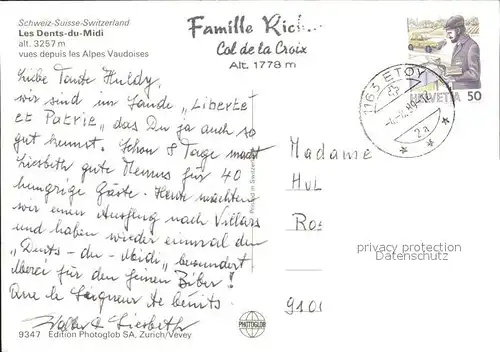 Schweiz-Suisse-Switzerland
Les Dents-du-Midi
alt. 3257 m
vues depuis les Alpes Vaudoises
Famille
Col de la Croix
Alt. 1778 m
HELVETIA 50
1163 ETOY
2a
Liebe Tante Huldy,
wir sind im Lande "Liberté
et Patrie", das Du ja auch so
gut kennst. Schon 8 Tage macht
Liesbeth gute Menus für 40
hungrige Gäste. Heute machten
wir einen Ausflug nach Villars
und haben wieder einmal den
"Dents-du-Midi" bewundert
Merci für den feinen Biber!
Que le Seigneur te bénits
Walter & Liesbeth
Madame
9347 Edition Photoglob SA, Zurich/Vevey
Printed in Switzerland
PHOTOGLOB
privacy protection
Datenschutz